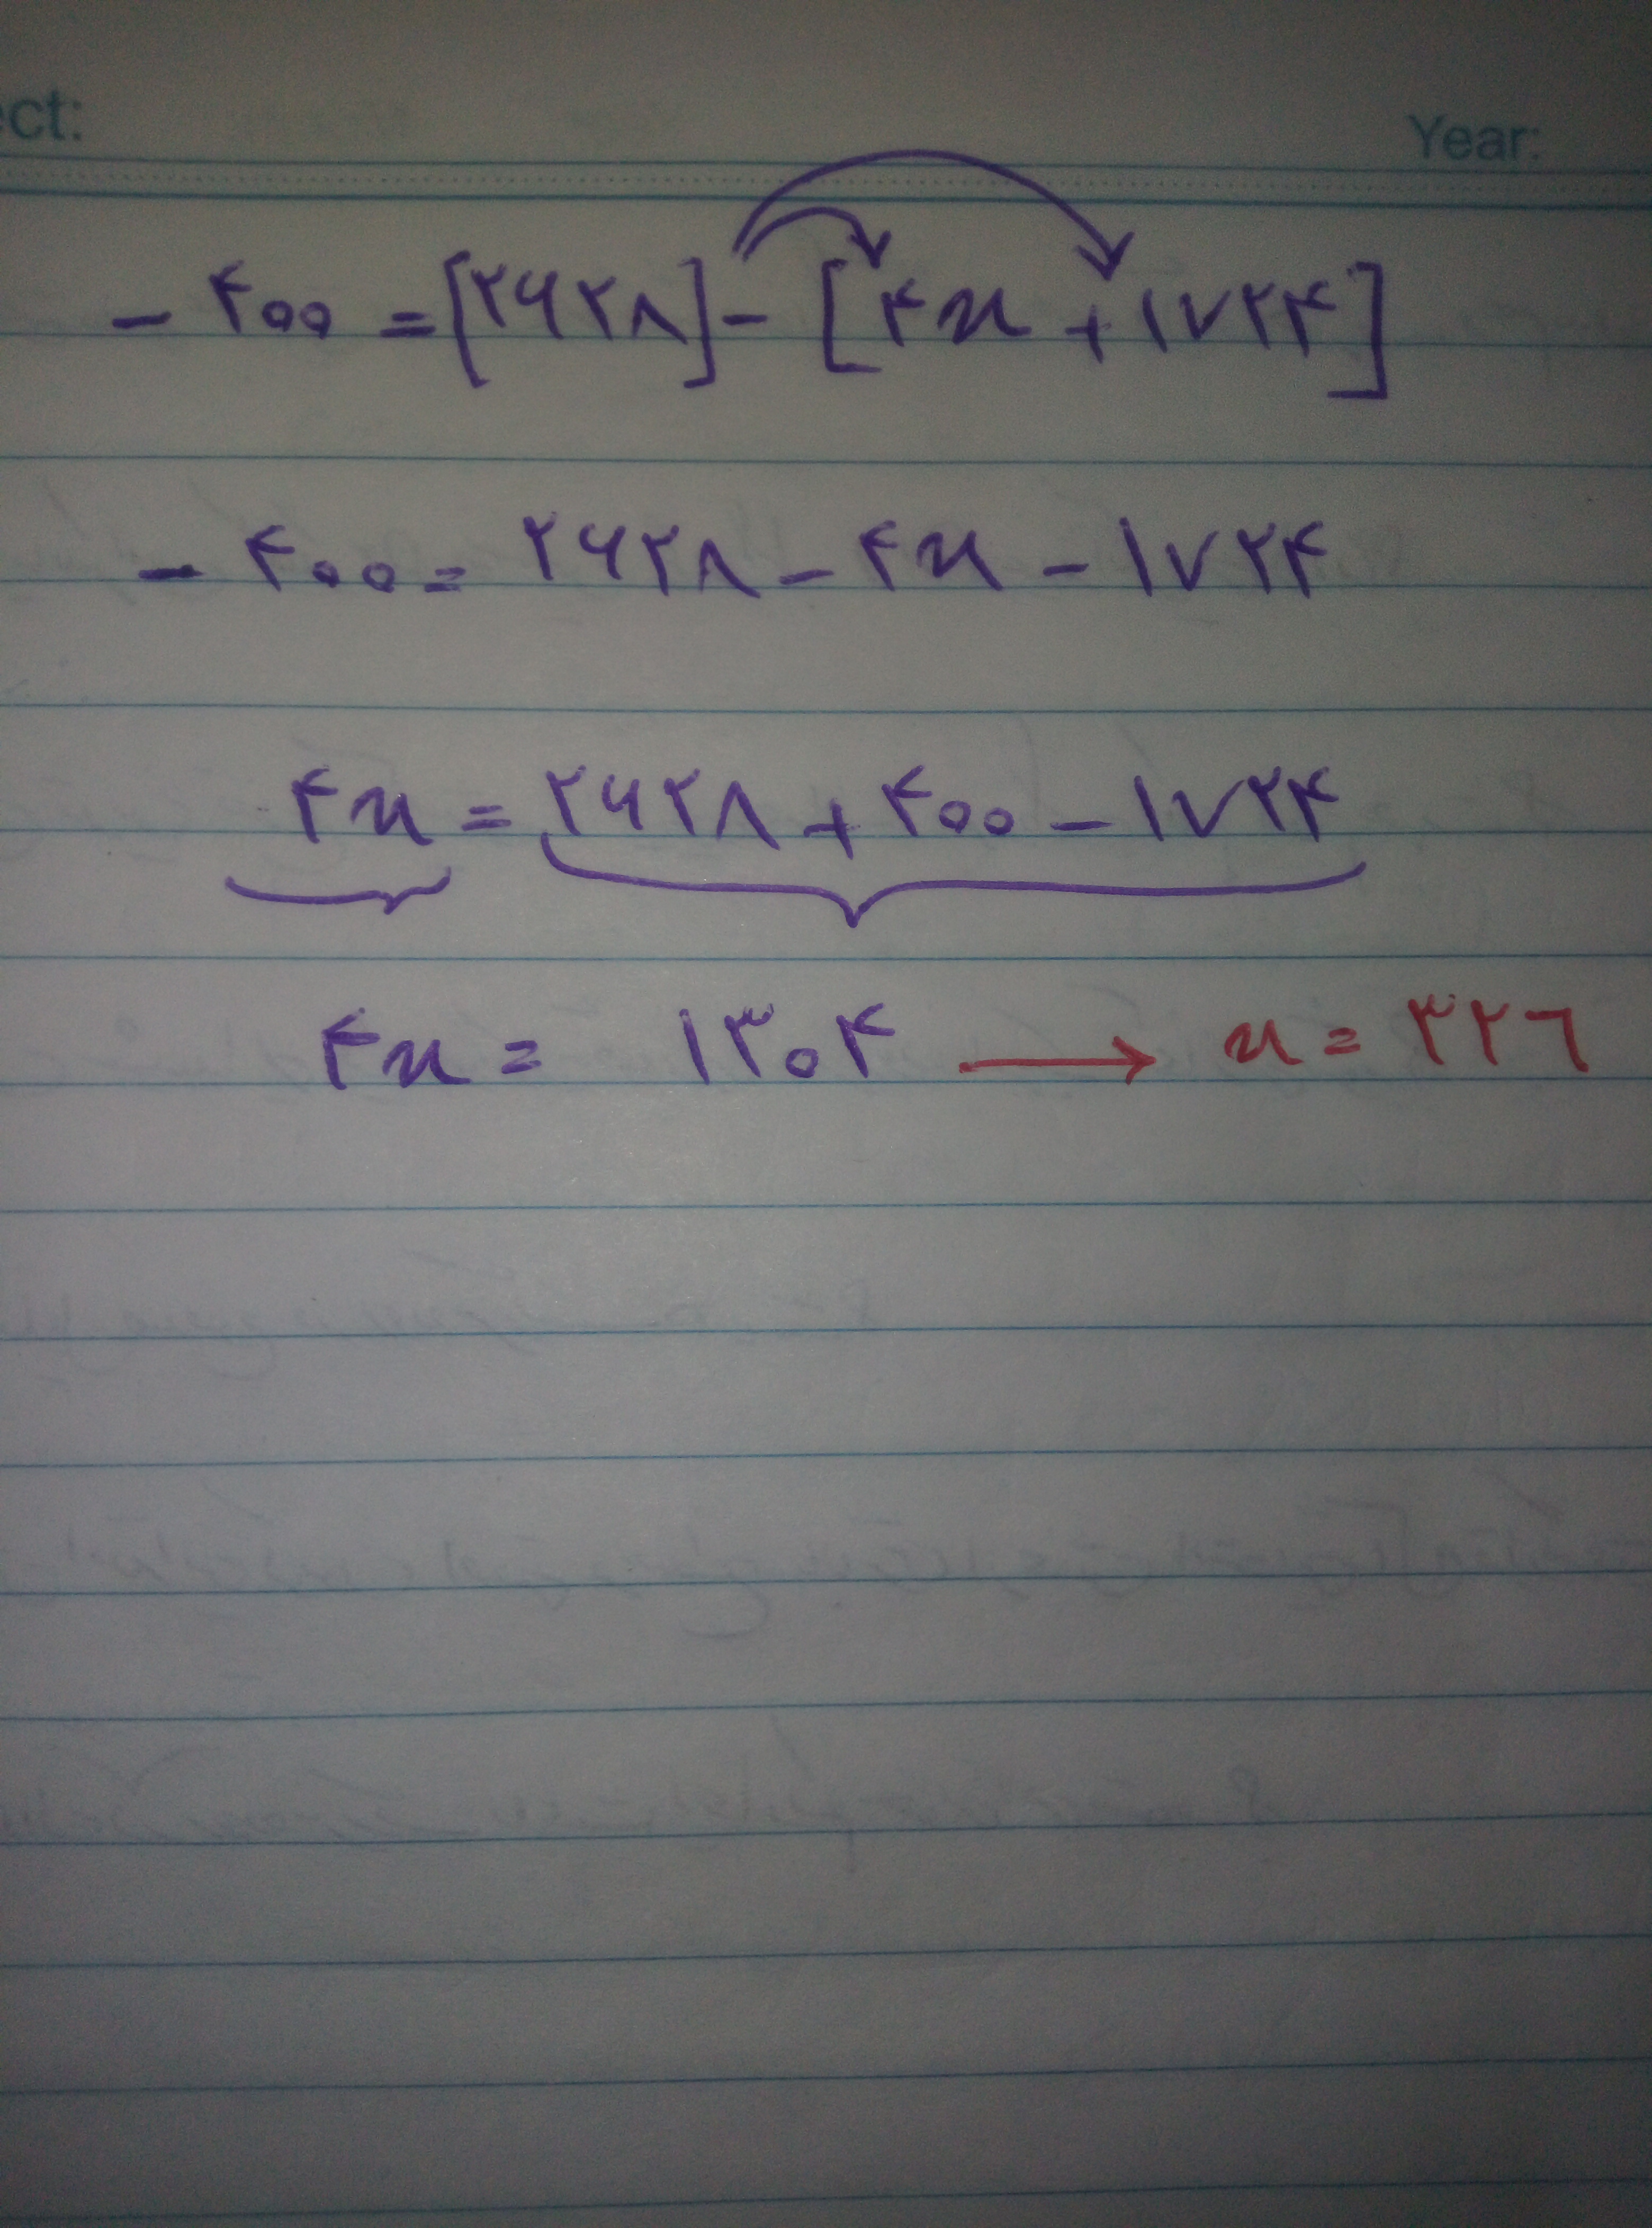 ect:
Year:
- ۴۰۰ = [۲۶۲۸] - [۴x + ۱۷۲۴]
- ۴۰۰ = ۲۶۲۸ - ۴x - ۱۷۲۴
۴x = ۲۶۲۸ + ۴۰۰ - ۱۷۲۴
۴x = ۱۳۰۴ → x = ۳۲٦